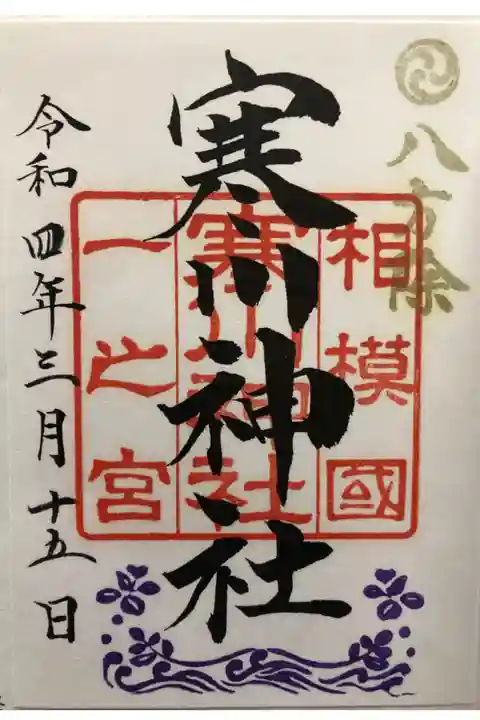 八方除
相模國
寒川神社
一之宮
寒川神社
令和四年三月十五日